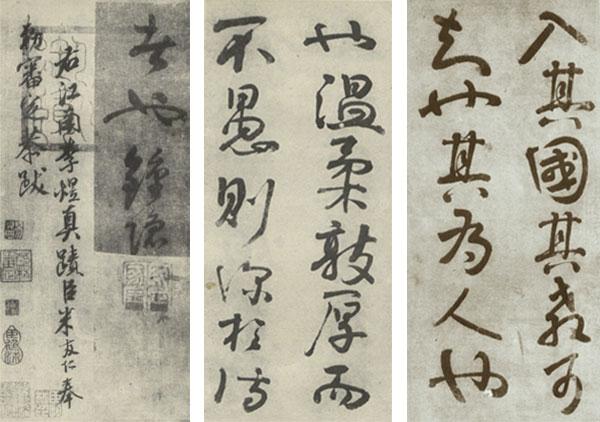 入其國其教可
知也其為人也
也温柔敦厚而
不愚則深於詩
者也鍾隐
右江南李煜真蹟臣米友仁奉
勅審定恭跋